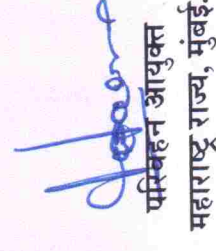 परिवहन आयुक्त
महाराष्ट्र राज्य, मुंबई.